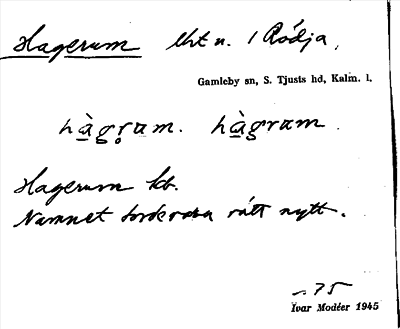 Hagerum lht u. 1 Rödja,
Gamleby sn, S. Tjusts hd, Kalm. l.
hàgrum. hàgrum.
Hagerum kb.
Namnet torde vara rätt nytt.
75
Ivar Modéer 1945